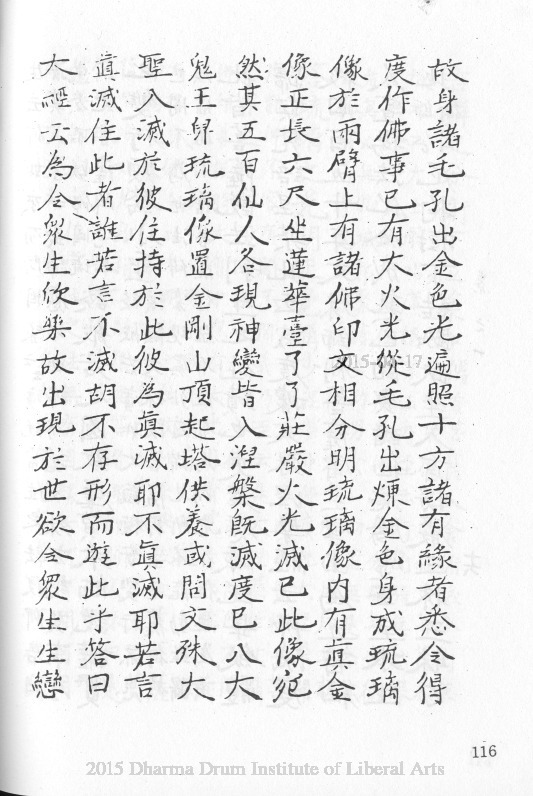 故身諸毛孔出金色光遍照十方諸有緣者悉令得
度作佛事已有大火光從毛孔出煉金色身成琉璃
像於兩臂上有諸佛印文相分明琉璃像內有真金
像正長六尺坐蓮華臺了了莊嚴火光滅已此像宛
然其五百仙人各現神變皆入涅槃既滅度已八大
鬼王舁琉璃像置金剛山頂起塔供養或問文殊大
聖入滅於彼住持於此彼為真滅耶不真滅耶若言
真滅住此者誰若言不滅胡不存形而遊此乎答曰
大經云為令眾生欣樂故出現於世欲令眾生生戀
116
2015 Dharma Drum Institute of Liberal Arts